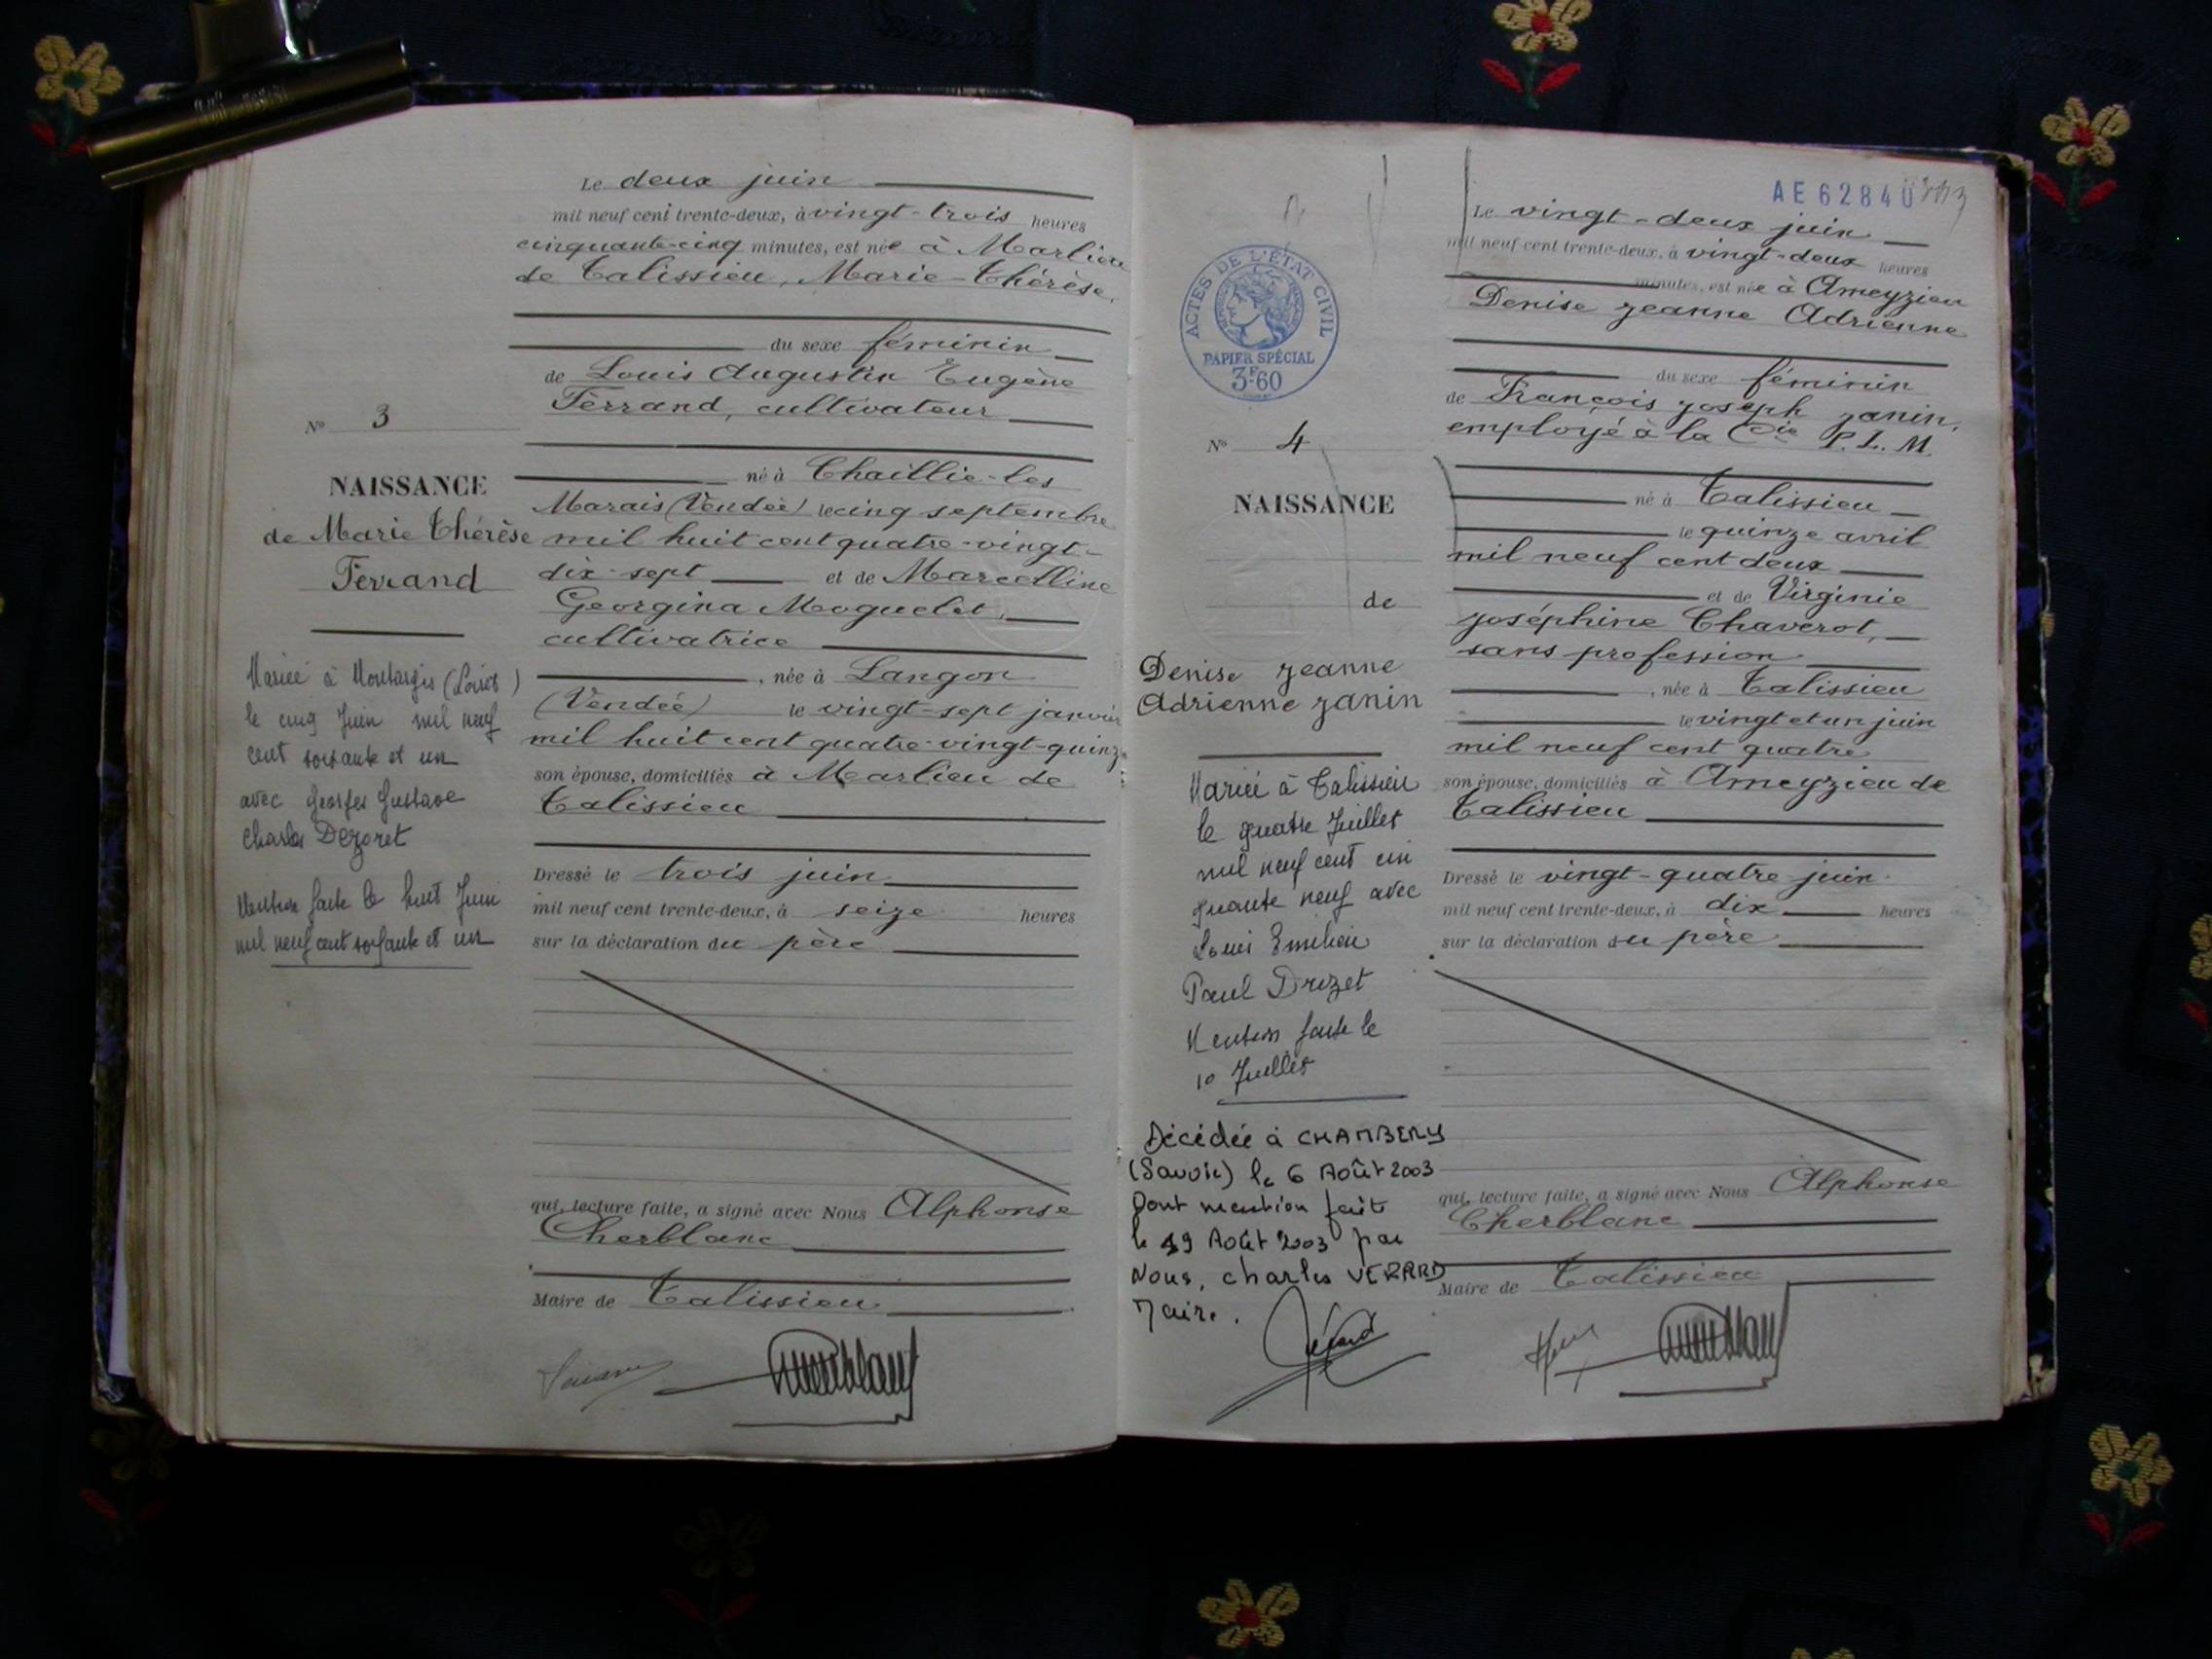 Le deux juin
mil neuf cent trente-deux, à vingt-trois heures
cinquante-cinq minutes, est née à Marlieu
de Talissieu, Marie-Thérèse,
du sexe féminin
de Louis Augustin Eugène
Ferrand, cultivateur
né à Chaillie-les
Marais (Vendée) le cinq septembre
mil huit cent quatre-vingt-
dix-sept et de Marcelline
Georgina Moguelet,
cultivatrice
, née à Langon
(Vendée) le vingt-sept janvier
mil huit cent quatre-vingt-quinze
son épouse, domiciliés à Marlieu de
Talissieu
Dressé le trois juin
mil neuf cent trente-deux, à seize heures
sur la déclaration du père
qui, lecture faite, a signé avec Nous Alphonse
Cherblanc
Maire de Talissieu
N° 3
NAISSANCE
de Marie Thérèse
Ferrand
Mariée à Montargis (Loiret)
le cinq Juin mil neuf
cent soixante et un
avec Georges Gustave
Charles Dezoret
Mention faite le huit Juin
mil neuf cent soixante et un
AE 62840
Le vingt-deux juin
mil neuf cent trente-deux, à vingt-deux heures
minutes, est née à Ameyzieu
Denise Jeanne Adrienne
du sexe féminin
de François Joseph Janin,
employé à la Cie P.L.M.
né à Talissieu
le quinze avril
mil neuf cent deux
et de Virginie
Joséphine Chaverot,
sans profession
, née à Talissieu
le vingt et un juin
mil neuf cent quatre
son épouse, domiciliés à Ameyzieu de
Talissieu
Dressé le vingt-quatre juin
mil neuf cent trente-deux, à dix heures
sur la déclaration du père
qui, lecture faite, a signé avec Nous Alphonse
Cherblanc
Maire de Talissieu
ACTES DE L'ÉTAT CIVIL
PAPIER SPÉCIAL
3F60
N° 4
NAISSANCE
de
Denise Jeanne
Adrienne Janin
Mariée à Talissieu
le quatre Juillet
mil neuf cent cin
quante neuf avec
Louis Emilien
Paul Drozet
Mention faite le
10 Juillet
Décédée à CHAMBERY
(Savoie) le 6 Août 2003
Dont mention faite
le 19 Août 2003 par
Nous, Charles VERARD
Maire.